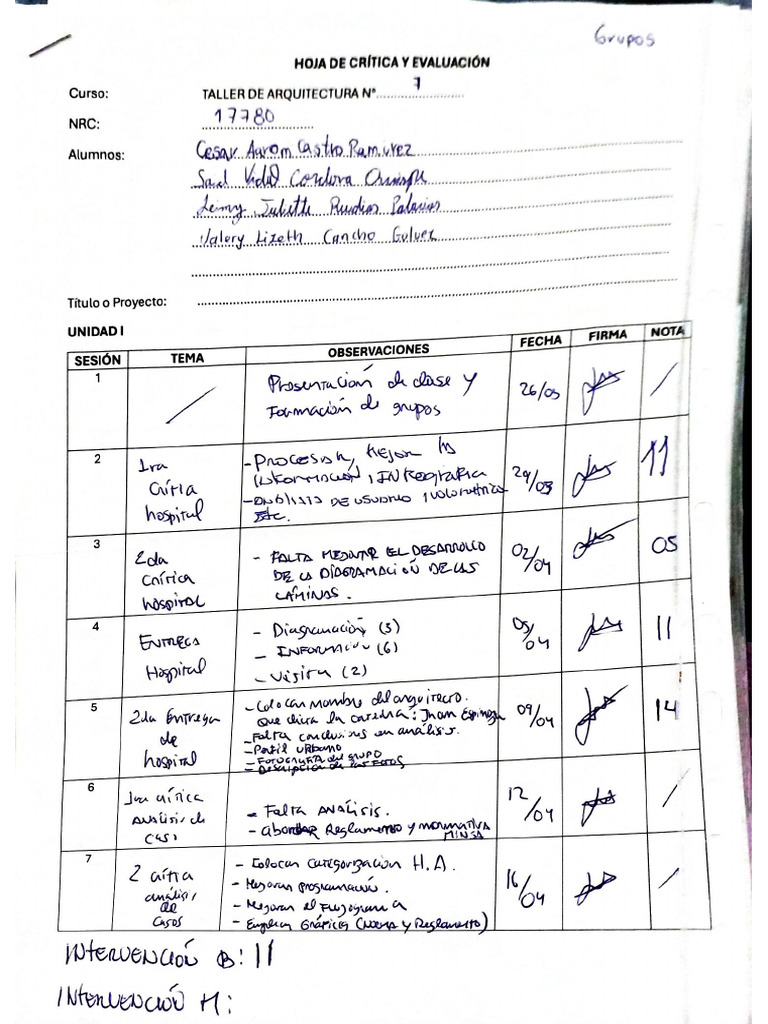 Grupos
HOJA DE CRÍTICA Y EVALUACIÓN
Curso: TALLER DE ARQUITECTURA N° 7
NRC: 17780
Alumnos: Cesar Aarom Castro Ramirez
Saul Vidal Cordova Quispe
Jubeth Palacios
Valery Lizeth Cancho Galvez
Título o Proyecto:
UNIDAD I
SESIÓN TEMA OBSERVACIONES FECHA FIRMA NOTA
1 Presentación de clase y
Formación de grupos 26/03
2 1ra Crítica hospital
- Procesar, mejorar la
información, INFOgrafía
- análisis de usuario, volumétrico
Etc. 29/03 11
3 2da Crítica hospital
- FALTA MEJORAR EL DESARROLLO
DE LA DIAGRAMACIÓN DE LAS
LÁMINAS. 02/04 05
4 ENTREGA Hospital
- Diagramación (3)
- INFORMACIÓN (6)
- Visita (2) 05/04 11
5 2da Entrega de hospital
- Colocar nombre del arquitecto.
que dicta la catedra: Jhom Espinoza
- Falta conclusiones en análisis.
- Perfil urbano
- FOTOGRAFÍA del grupo
- Descripción de las fotos 09/04 14
6 1ra crítica análisis de caso
- Falta análisis.
- abordar Reglamento y normativa
MINSA 12/04
7 2 crítica análisis de casos
- Colocar categorización H.A.
- Mejorar programación.
- Mejorar el Flujograma
- Emplear Gráficos (Norma y Reglamento) 16/04
INTERVENCIÓN B: 11
INTERVENCIÓN M: